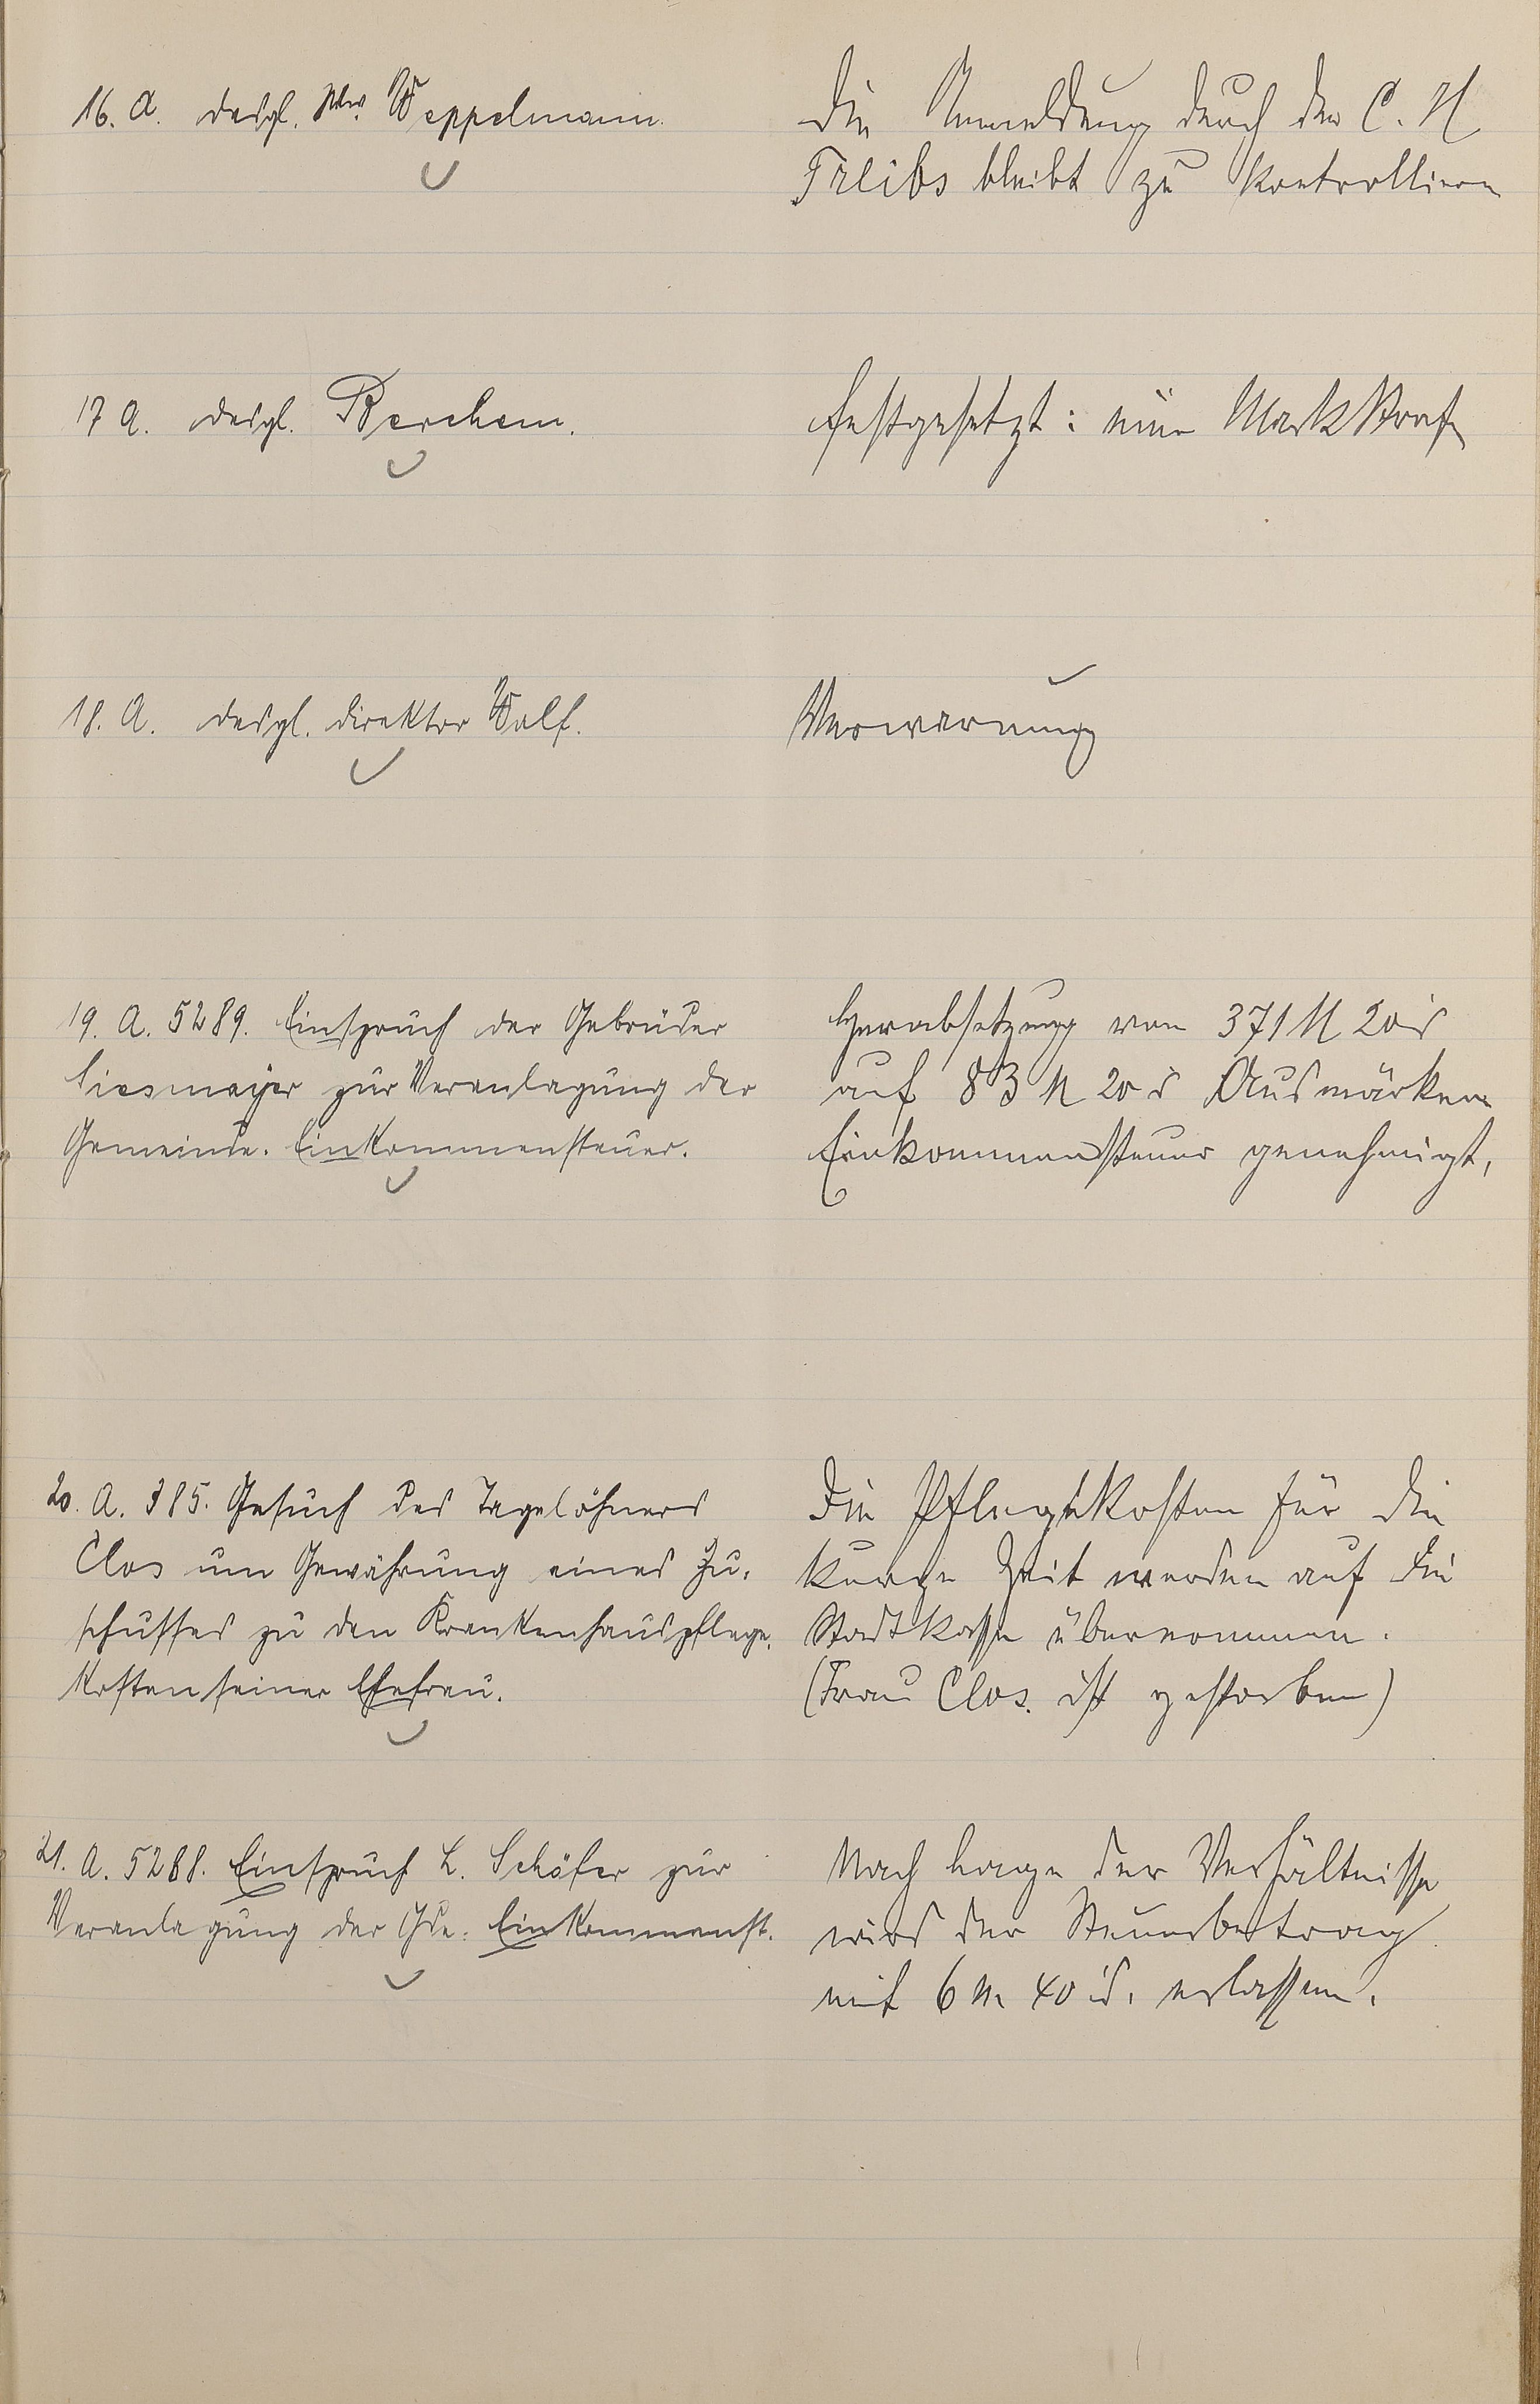 16. A. desgl. Ww. Weppelmann.
Die Anmeldung durch den C. H.
Treibs bleibt zu kontrollieren
17 A. desgl. Berchem.
festgesetzt: eine Mark Strafe
18. A. desgl. Direktor Wolf.
Verwarnung
19. A. 5289. Einspruch der Gebrüder
Siesmayer zur Veranlagung der
Gemeinde-Einkommensteuer.
Herabsetzung von 371 M 20 d
auf 83 M 20 d Ausmärker
Einkommensteuer genehmigt,
20. A. 385. Gesuch des Tagelöhners
Clos um Gewährung eines Zu-
schusses zu den Krankenhauspflege-
kosten seiner Ehefrau.
Die Pflegekosten für die
kurze Zeit werden auf die
Stadtkasse übernommen.
(Frau Clos. ist gestorben)
21. A. 5288. Einspruch L. Schäfer zur
Veranlagung der Gde. Einkommenst.
Nach Lage der Verhältnisse
wird der Steuerbetrag
mit 6 M. 40 d. erlassen.